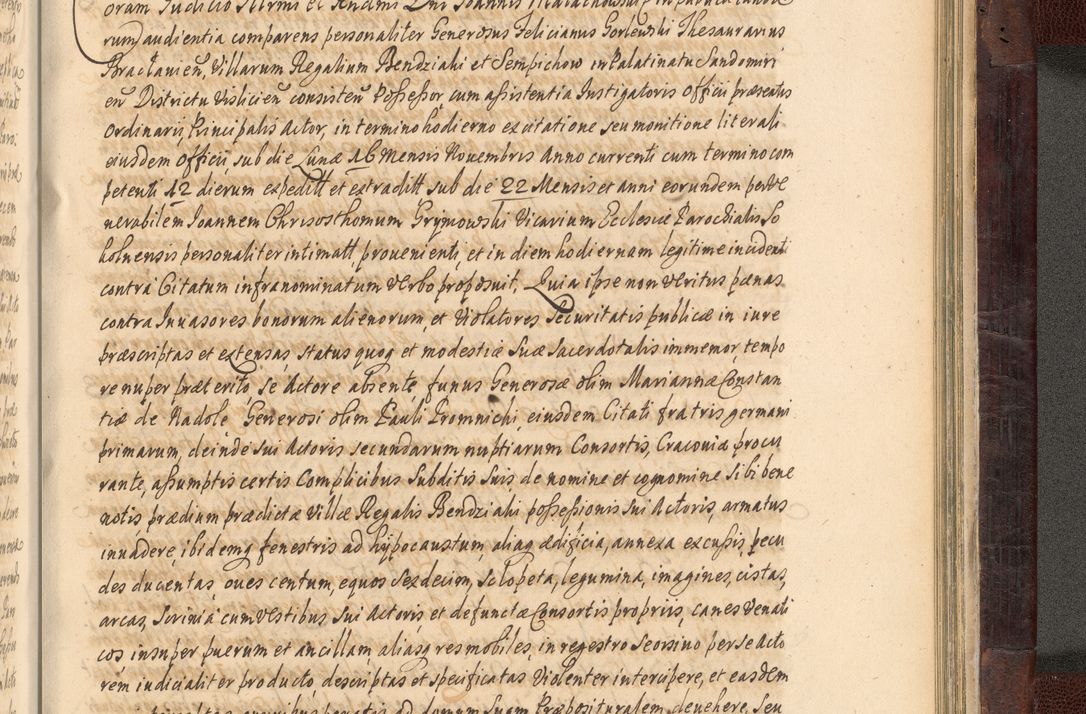 oram Judicio Illrmi et Rndmi Dni Joannis Małachowski
rum audientia comparens personaliter Generosus Felicianus Gorlewski Thesaurarius
Bracłavien, Villarum Regalium Bendziaki et Sempichow in Palatinatu Sandomiri
en Districtu Vislicien consisten Possessor, cum assistentia Instigatoris Officii præsentis
Ordinarij, Principalis Actor, in termino hodierno ex citatione seu monitione literali
eiusdem Officii, sub die Lunæ 16 Mensis Novembris Anno currenti cum termino com
petenti 12 dierum expeditt et extraditt sub die 22 Mensis et anni eorundem per Ve
nerabilem Joannem Chrisosthomum Grymowski Vicarium Ecclesiæ Parochialis So
kolnensis personaliter intimatt, provenienti, et in diem hodiernam legitime incidenti
contra Citatum infranominatum verbo proposuit, Quia ipse non veritus pænas
contra Invasores bonorum alienorum, et Violatores Securitatis publicæ in iure
præscriptas et extensas, status quoq et modestiæ suæ sacerdotalis immemor, tempo
re nuper præterito, se Actore absente, funus Generosæ olim Mariannæ Constan
tiæ de Nadole Generosi olim Pauli Promnicki, eiusdem Citati fratris germani
primarum, deinde sui Actoris secundarum nuptiarum Consortis, Cracoviæ procu
rante, assumptis certis Complicibus Subditis suis de nomine et cognomine sibi bene
notis, prædium prædictæ villæ Regalis Bendziaki possessionis sui Actoris, armatus
invadere, ibidemq fenestris ad hypocaustum, aliaq ædificia, annexa excussis, pecu
des ducentas, oves centum, equos sexdecim, sclopeta, legumina, imagines, cistas,
arcas, scrinia cum vestibus sui Actoris, et defunctæ Consortis propriis, canes venati
cos insuper puerum et ancillam, aliasq res mobiles, in regestro seorsivo per se Acto
rem iudicialiter producto, descriptas et specificatas Violenter intercipere, et easdem
ad domum suam Præpositturalem devehere, seu